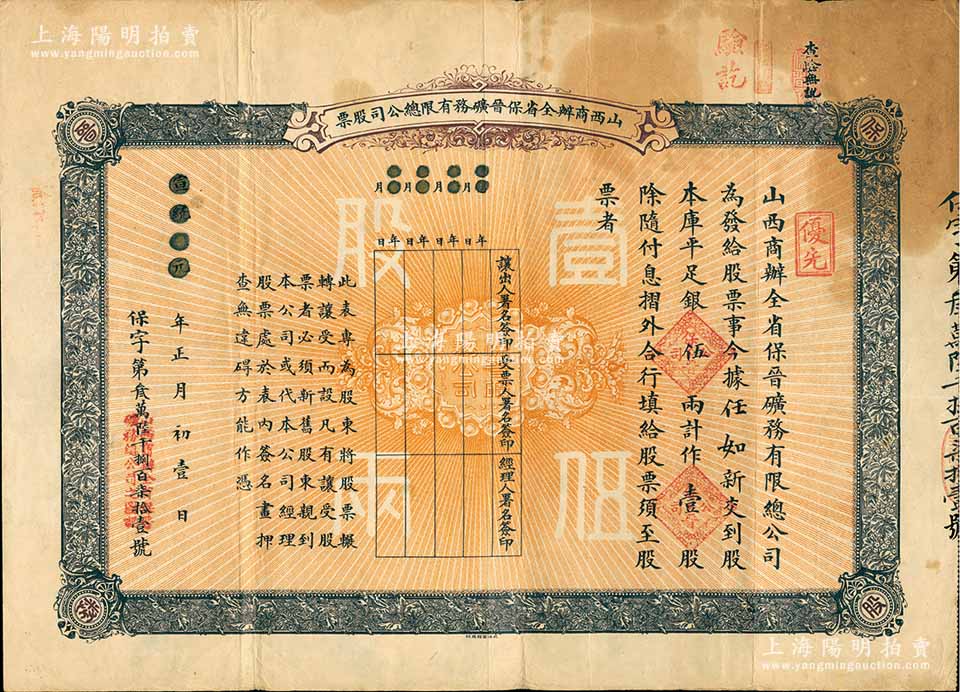 上海陽明拍賣
www.yangmingauction.com
驗訖
查驗無訛
山西商辦全省保晉礦務有限總公司股票
保
晉
礦
股
優先
山西商辦全省保晉礦務有限總公司
為發給股票事今據任如新交到股
本庫平足銀伍兩計作壹股
除隨付息摺外合行填給股票須至股
票者
壹股
伍兩
年 年 年 年
月 月 月 月
日 日 日 日
讓出人署名簽印
受票人署名簽印
經理人署名簽印
此表專為股東將股票輾
轉讓受而設凡有讓受股
票者必須新舊股東親到
本公司或代本公司經理
股票處於表內簽名畫押
查無違碍方能作憑
宣統元年正月初壹日
保字第貳萬陸千捌百柒拾壹號
上海陽明拍賣
www.yangmingauction.com
上海陽明拍賣
www.yangmingauction.com